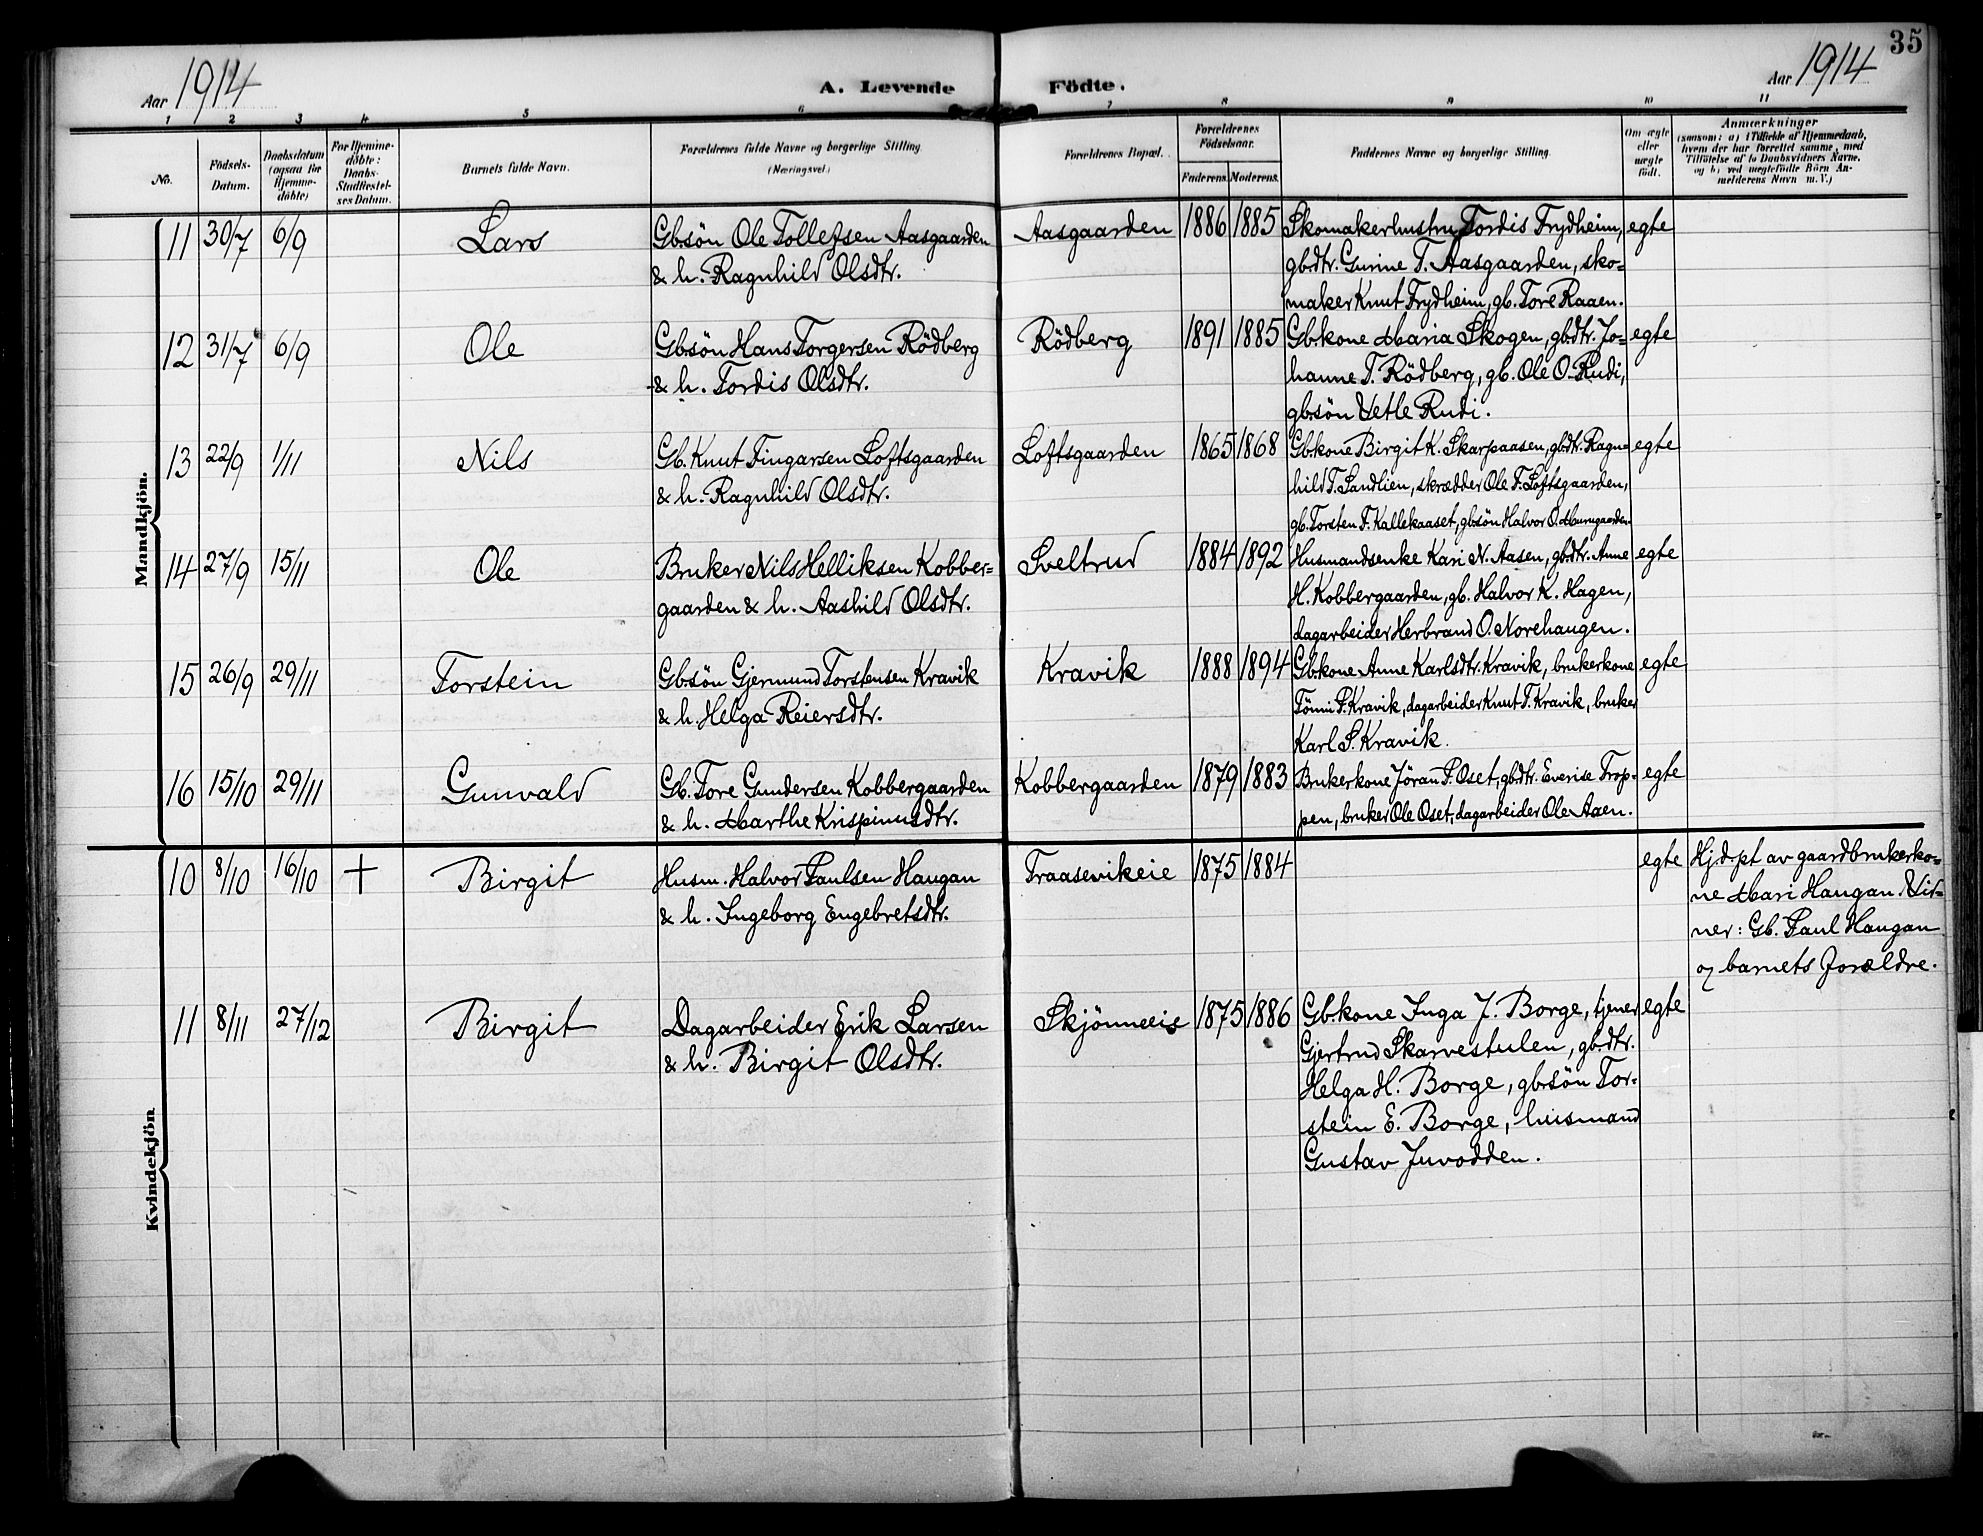 35
Aar 1914
A. Levende Födte.
Aar 1914
1 2 3 4 5 6 7 8 9 10 11
No.
Födsels-
Datum.
Daabsdatum
(ogsaa for
Hjemme-
döbte)
For Hjemme-
döbte:
Daabs-
Stadfestel-
ses Datum.
Barnets fulde Navn.
Forældrenes fulde Navne og borgerlige Stilling
(Næringsvei.)
Forældrenes Bopæl.
Forældrenes
Födselsaar.
Faderens. Moderens.
Faddernes Navne og borgerlige Stilling
Om ægte
eller
uægte
födt.
Anmærkninger
(saasom: a) i Tilfælde af Hjemmedaab,
hvem der har forrettet samme, med
Tilföielse af to Daabsvidners Navne,
og b) ved uægtefödte Börn An-
melderens Navn m. V.)
Mandkjön.
11 30/7 6/9 Lars
Gbsön Ole Tollefsen Aasgaarden
& h. Ragnhild Olsdtr.
Aasgaarden 1886 1885
Skomakerhustru Tordis Frydheim,
gbdtr. Gurine T. Aasgaarden, sko-
maker Knut Frydheim, gb. Tore Raaen.
egte
12 31/7 6/9 Ole
Gbsön Hans Torgersen Rödberg
& h. Tordis Olsdtr.
Rödberg 1891 1885
Gbkone Maria Skogen, gbdtr. Jo-
hanne T. Rödberg, gb. Ole O. Rudi,
gbsön Vetle Rudi.
egte
13 22/9 1/11 Nils
Gb. Knut Fingarsen Loftsgaarden
& h. Ragnhild Olsdtr.
Loftsgaarden 1865 1868
Gbkone Birgit K. Skarpaasen, gbdtr. Ragn-
hild T. Sandlien, skrædder Ole F. Loftsgaarden,
gb. Torsten F. Kallekaaset, gbsön Halvor O.
egte
14 27/9 15/11 Ole
Bruker Nils Helliksen Kobber-
gaarden & h. Aashild Olsdtr.
Sveltrud 1884 1892
Husmandsenke Kari N. Aasen, gbdtr. Anne
H. Kobbergaarden, gb. Halvor K. Hagen,
dagarbeider Herbrand O. Norehaugen.
egte
15 26/9 29/11 Torstein
Gbsön Gjermund Torstensen Kravik
& h. Helga Reiersdtr.
Kravik 1888 1894
Gbkone Anne Karlsdtr. Kravik, brukerkone
Tönni P. Kravik, dagarbeider Knut T. Kravik, bruker
Karl S. Kravik.
egte
16 15/10 29/11 Gunvald
Gb. Tore Gundersen Kobbergaarden
& h. Marthe Krispinusdtr.
Kobbergaarden 1879 1883
Brukerkone Jöran P. Oset, gbdtr. Everise Trop-
pen, bruker Ole Oset, dagarbeider Ole Aaen.
egte
Kvindekjön
10 8/10 16/10 + Birgit
Husm. Halvor Paulsen Haugan
& h. Ingeborg Engebretsdtr.
Traasevikeie 1875 1884
egte
Hjdpt av gaardbrukerko-
ne Mari Haugan. Vid-
ner: Gb. Paul Haugan
og barnets forældre.
11 8/11 27/12 Birgit
Dagarbeider Erik Larsen
& h. Birgit Olsdtr.
Skjönneeie 1875 1886
Gbkone Inga J. Borge, tjener
Gjertrud Skarvestulen, gbdtr.
Helga H. Borge, gbsön Tor-
stein E. Borge, husmand
Gustav Juvodden.
egte